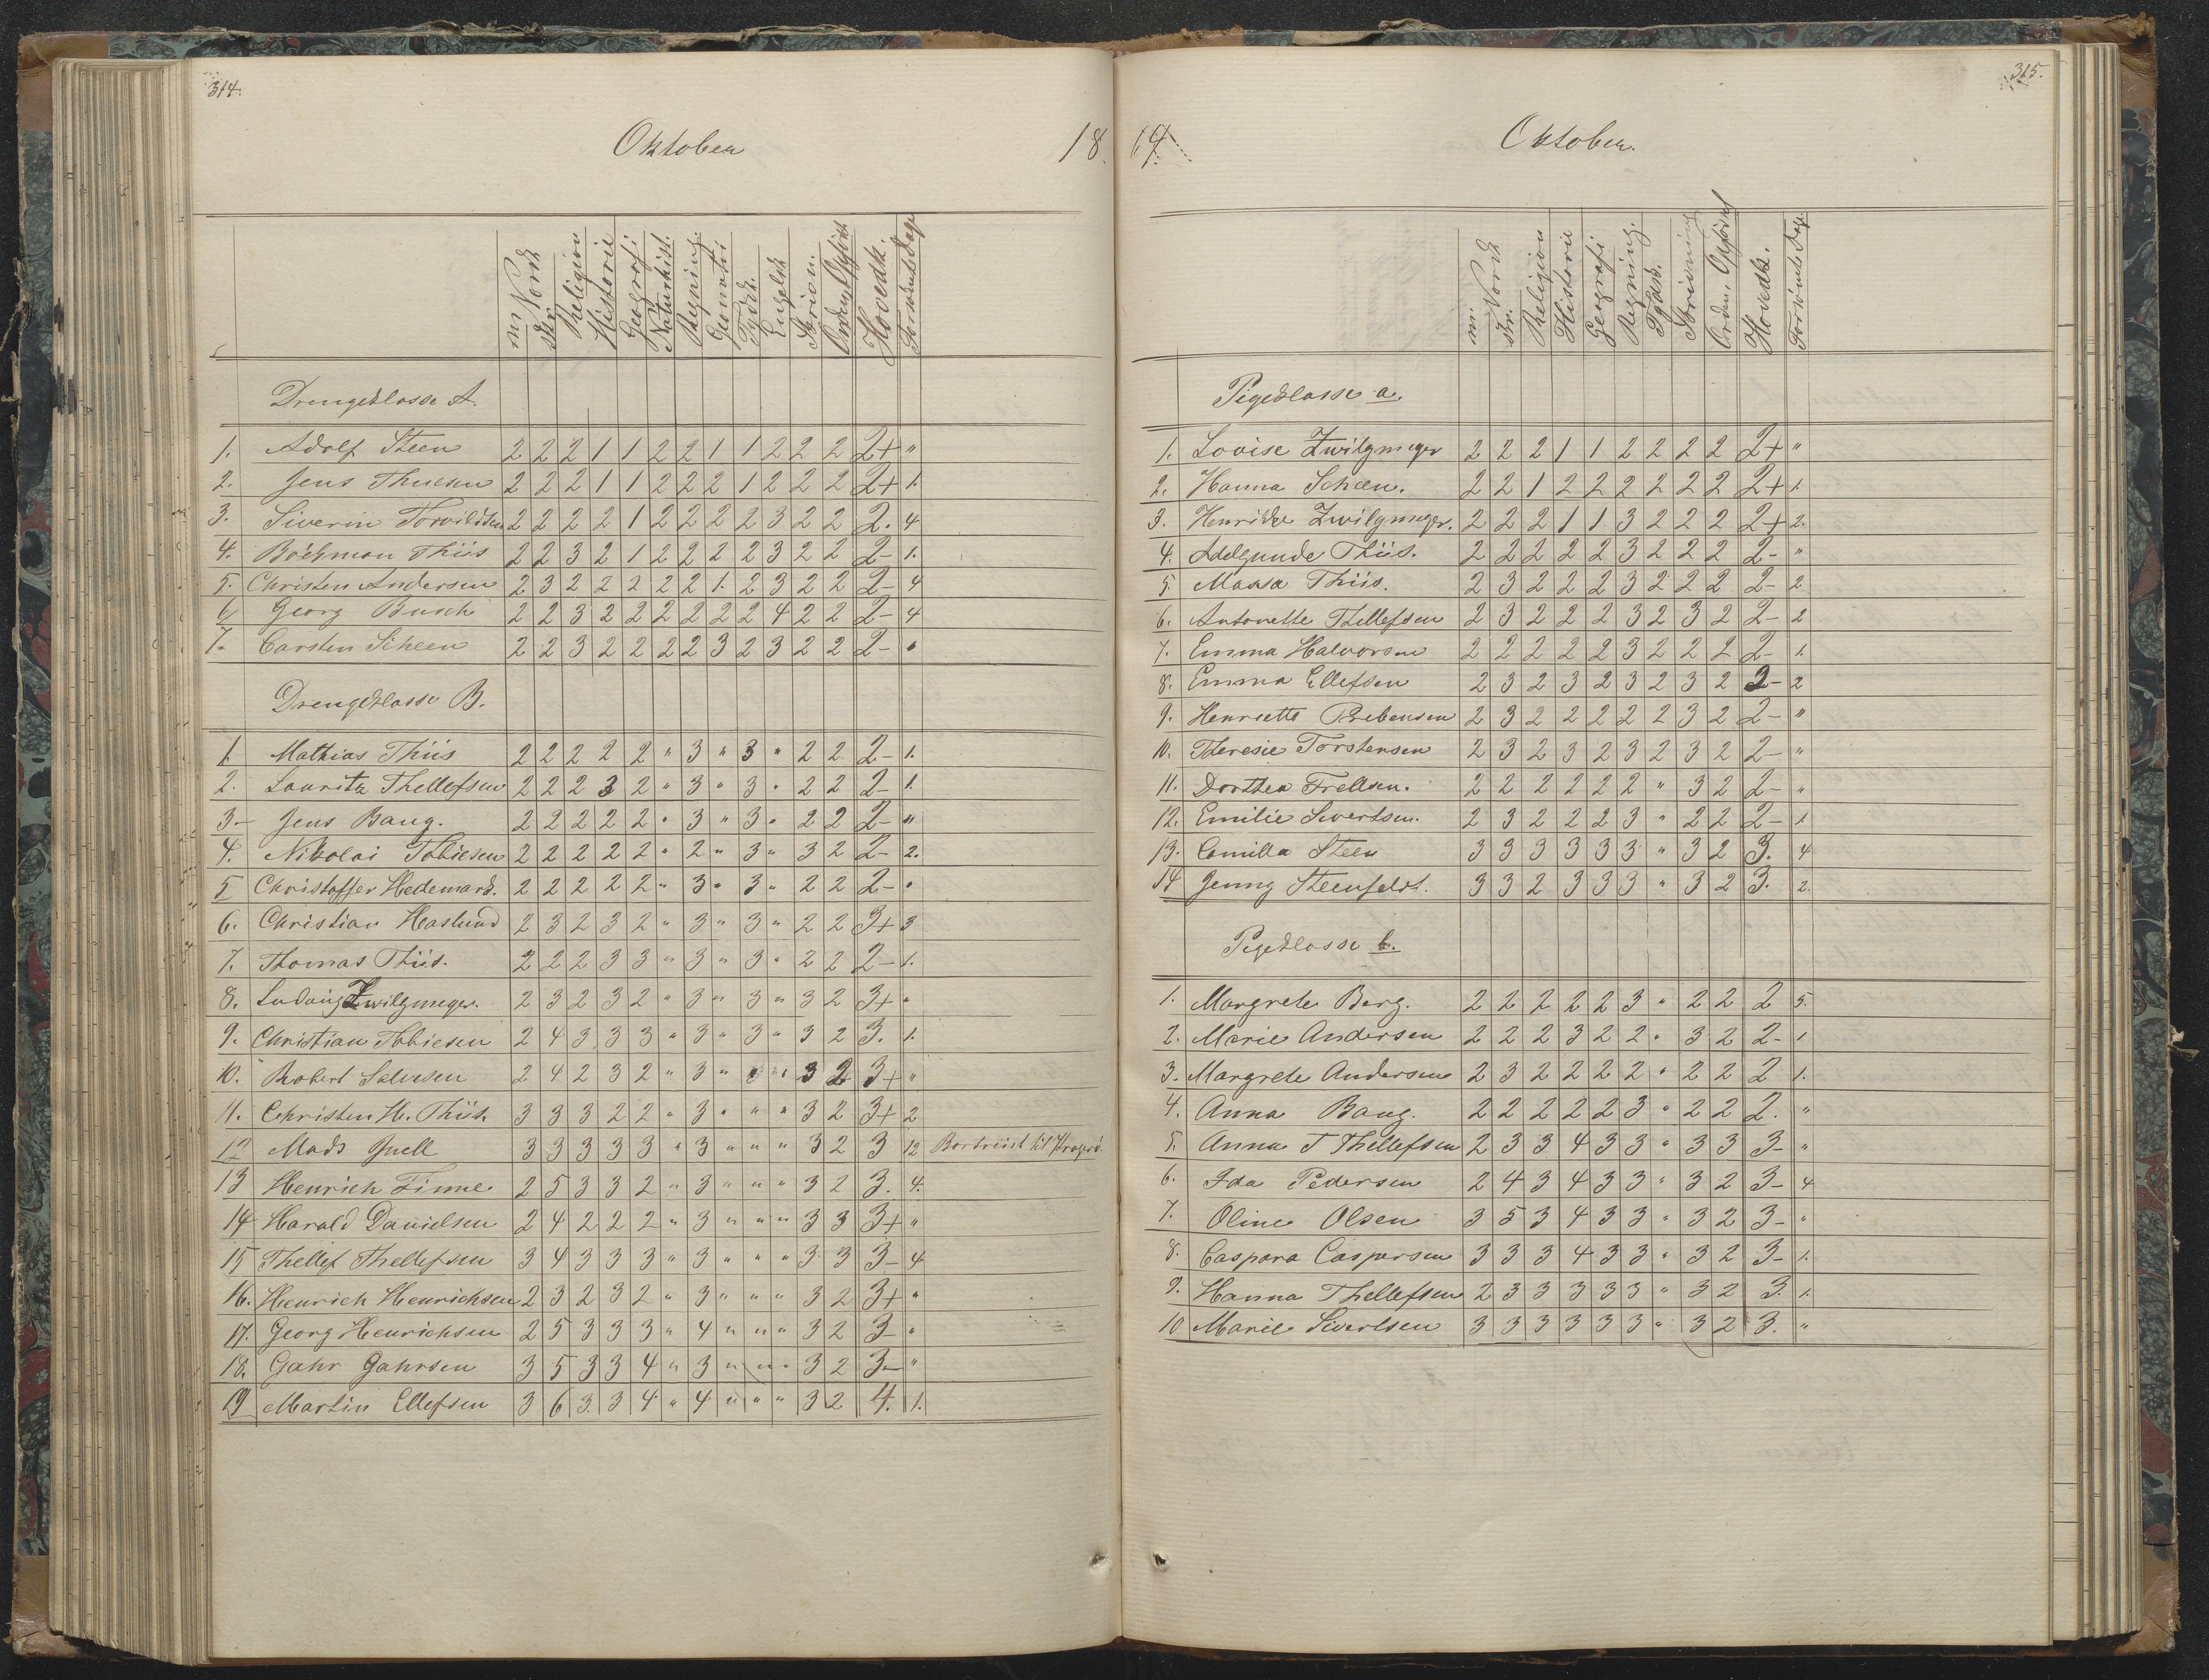 314.
Oktober 18
m. Norsk skr. Religion Historie Geografi Naturhist. Regning. Geometri Tydsk. Engelsk Skrivn. Orden Opførs. Hovedk. Forsömte Dage
Drengeklasse A.
1. Adolf Steen 2 2 2 1 1 2 2 1 1 2 2 2 2+ "
2. Jens Thuesen 2 2 2 1 1 2 2 2 1 2 2 2 2+ 1.
3. Siverin Torvildsen 2 2 2 2 1 2 2 2 2 3 2 2 2. 4
4. Böckman Thiis 2 2 3 2 1 2 2 2 2 3 2 2 2- 1.
5. Christen Andersen 2 3 2 2 2 2 2 1. 2 3 2 2 2- 4
6 Georg Busch 2 2 3 2 2 2 2 2 2 4 2 2 2- 4
7. Carsten Scheen 2 2 3 2 2 2 2 3 2 3 2 2 2- "
Drengeklasse B.
1. Mathias Thiis 2 2 2 2 2 " 3 " 3 " 2 2 2- 1.
2. Lauritz Thellefsen 2 2 2 3 2 " 3 " 3 " 2 2 2- 1.
3.- Jens Bang. 2 2 2 2 2 " 3 " 3 " 2 2 2- "
4. Nikolai Tobiesen 2 2 2 2 2 " 2 " 3 " 3 2 2- 2.
5 Christoffer Hedemark. 2 2 2 2 2 " 3 " 3 " 2 2 2- "
6. Christian Haslund 2 3 2 3 2 " 3 " 3 " 2 2 3+ 3
7. Thomas Thiis. 2 2 2 3 3 " 3 " 3 " 2 2 2- 1.
8. Ludvig Zwilgmeyer. 2 3 2 3 2 " 3 " 3 " 3 2 3+ "
9. Christian Tobiesen 2 4 3 3 3 " 3 " 3 " 3 2 3. 1.
10. Robert Salvesen 2 4 2 3 2 " 3 " " " 3 2 3+ "
11. Christen H. Thiis. 3 3 3 2 2 " 3 " " " 3 2 3+ 2
12 Mads Juell 3 3 3 3 3 " 3 " " " 3 2 3 12 Bortreist til Kragerö.
13 Henrich Finne. 2 5 3 3 2 " 3 " " " 3 2 3. 4.
14 Harald Danielsen 2 4 2 2 2 " 3 " " " 3 3 3+ "
15 Thellef Thellefsen 3 4 3 3 3 " 3 " " " 3 3 3- 4
16. Henrich Henrichsen 2 3 2 3 2 " 3 " " " 3 2 3+ "
17. Georg Henrichsen 2 5 3 3 3 " 4 " " " 3 2 3- "
18. Gahr Gahrsen 3 5 3 3 4 " 3 " " " 3 2 3- "
19 Martin Ellefsen 3 6 3 3 4 " 4 " " " 3 2 4. 1.
315.
64. Oktober.
m. Norsk skr. Religion Historie Geografi Regning. Tydsk. Skrivning Orden, Opførsel Hovedk. Forsömte Dage.
Pigeklasse a.
1. Lovise Zwilgmeyer 2 2 2 1 1 2 2 2 2 2+ "
2. Hanna Scheen. 2 2 1 2 2 2 2 2 2 2+ 1.
3. Henrikke Zwilgmeyer. 2 2 2 1 1 3 2 2 2 2+ 2.
4. Adelgunde Thiis. 2 2 2 2 2 3 2 2 2 2- "
5. Maasa Thiis. 2 3 2 2 2 3 2 2 2 2- 2
6. Antonette Thellefsen 2 3 2 2 2 3 2 3 2 2- 2
7. Emma Halvorsen 2 2 2 2 2 3 2 2 2 2- 1.
8. Emma Ellefsen 2 3 2 3 2 3 2 3 2 2- 2
9. Henriette Prebensen 2 3 2 2 2 2 2 3 2 2- "
10. Theresie Torstensen 2 3 2 3 2 3 2 3 2 2- "
11. Dorthea Frellsen. 2 2 2 2 2 2 " 3 2 2- "
12. Emilie Sivertsen. 2 3 2 2 2 3 " 2 2 2- 1.
13. Camilla Steen 3 3 3 3 3 3 " 3 2 3. 4
14 Jenny Steenfeldt. 3 3 2 3 3 3 " 3 2 3. 2.
Pigeklasse b.
1. Margrete Berg. 2 2 2 2 2 3 " 2 2 2 5.
2. Marie Andersen 2 2 2 3 2 2 " 3 2 2- 1
3. Margrete Andersen 2 3 2 2 2 2 " 2 2 2 1.
4. Anna Bang. 2 2 2 2 2 3 " 2 2 2. "
5. Anna T Thellefsen 2 3 3 4 3 3 " 3 3 3- "
6. Ida Pedersen 2 4 3 4 3 3 " 3 2 3- 4
7. Oline Olsen 3 5 3 4 3 3 " 3 2 3- "
8. Caspara Caspersen 3 3 3 4 3 3 " 3 2 3- 1.
9. Hanna Thellefsen 2 3 3 3 3 3 " 3 2 3. 1.
10 Marie Sivertsen 3 3 3 3 3 3 " 3 2 3. "